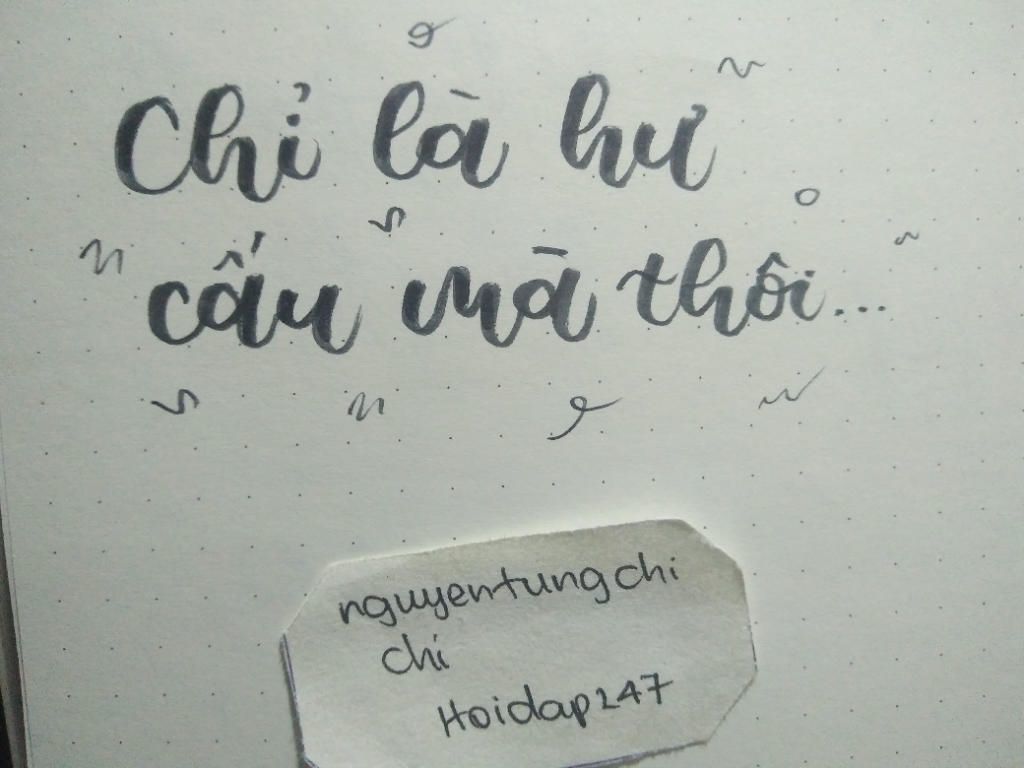 Chỉ là hư
cấu mà thôi...
nguyentungchi
chi
Hoidap247